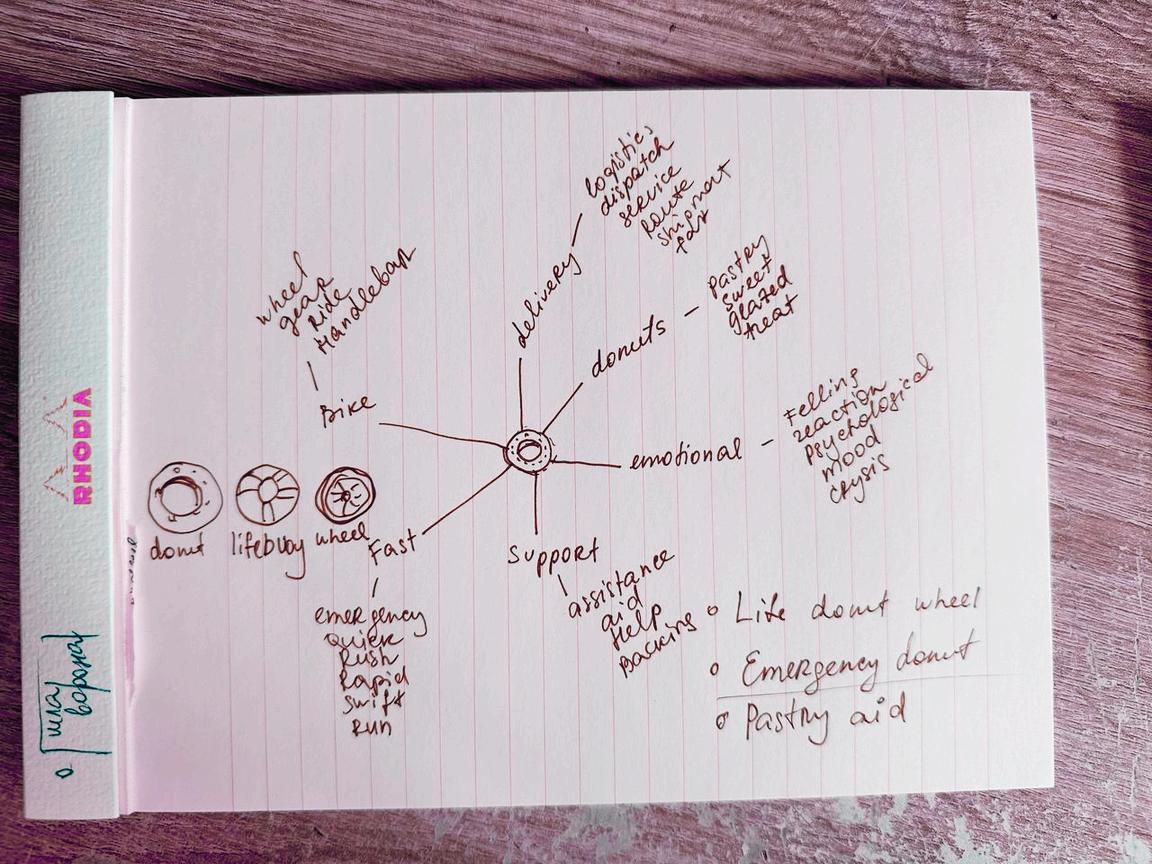 logistics
dispatch
service
Route
shipment
fast
delivery
Pastry
sweet
glazed
treat
donuts
wheel
gear
Ride
Handlebar
Bike
Felling
reaction
psychological
mood
crysis
emotional
RHODIA
donut
lifebuoy
wheel
Fast
emergency
Quick
Rush
Rapid
swift
Run
Support
assistance
aid
Help
Backing
Life donut wheel
Emergency donut
Pastry aid
шла
ворона